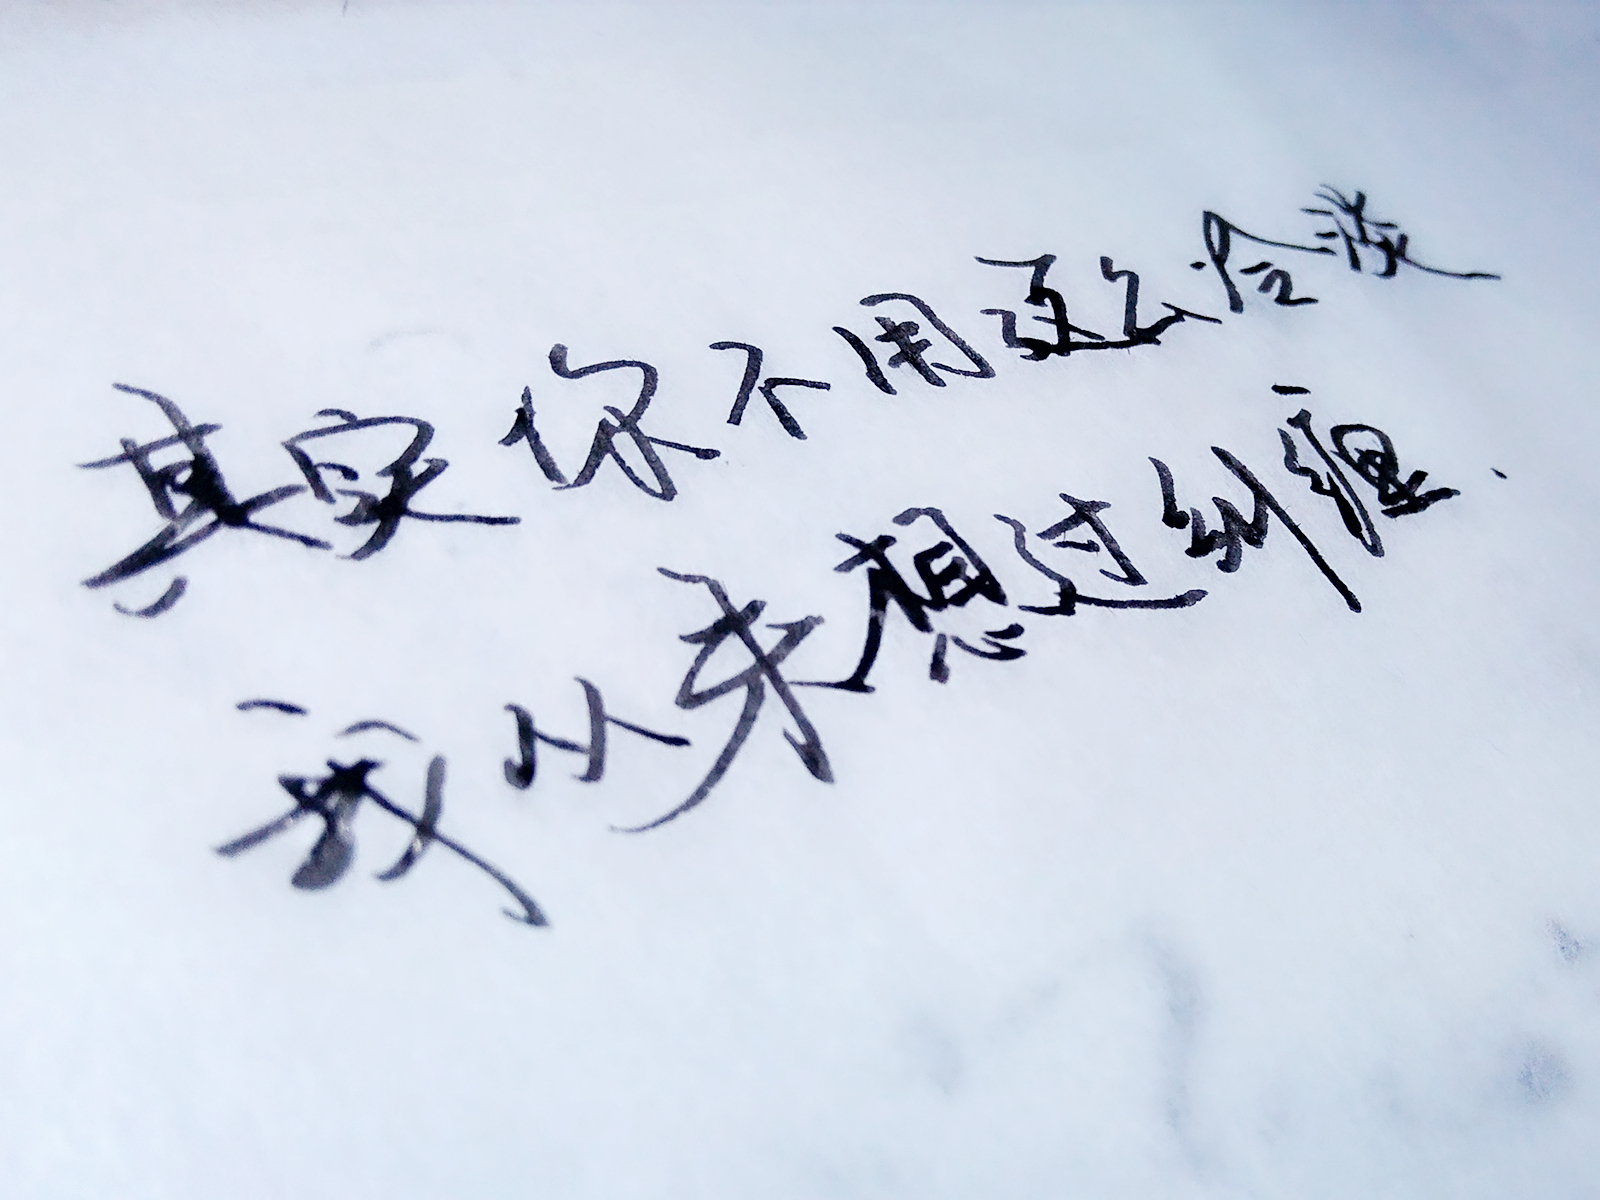 其实你不用这么冷淡
我从未想过纠缠.